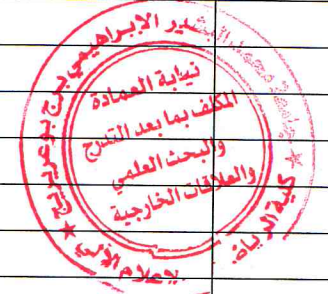 جامعة محمد البشير الإبراهيمي برج بوعريريج
كلية الرياضيات
والإعلام الآلي
نيابة العمادة
المكلف بما بعد التدرج
والبحث العلمي
والعلاقات الخارجية